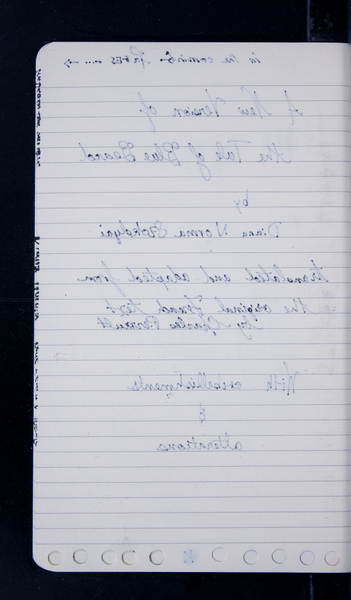 in the coming PAGES .... →
A New Version of
the Tale of Blue Beard
by
Diana Norma Szokolyai
translated and adapted from
the original French text
by Charles Perrault
With embellishments
&
alterations